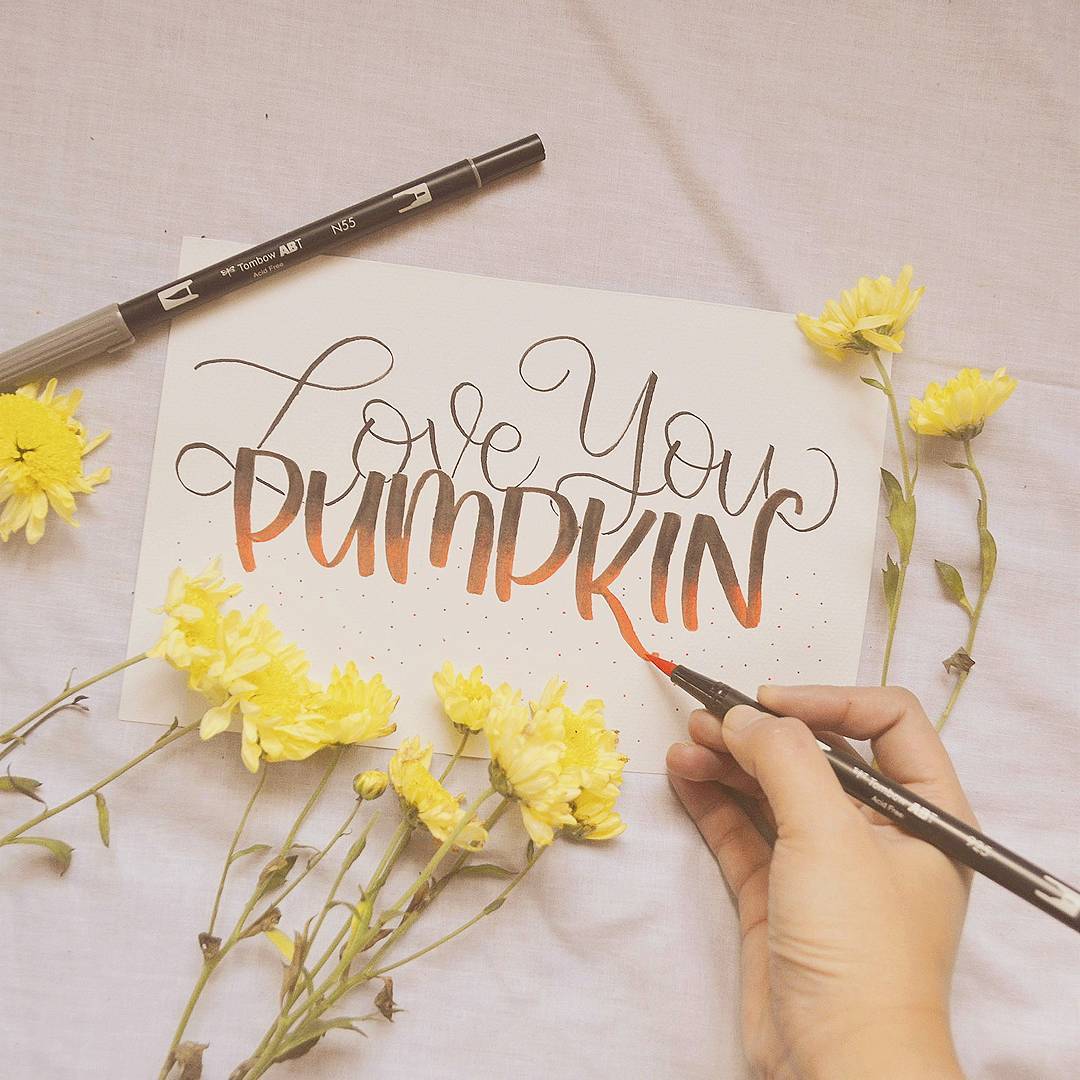 Tombow ABT N55
Acid Free
Love You
PUMPKIN
Tombow ABT 925
Acid Free